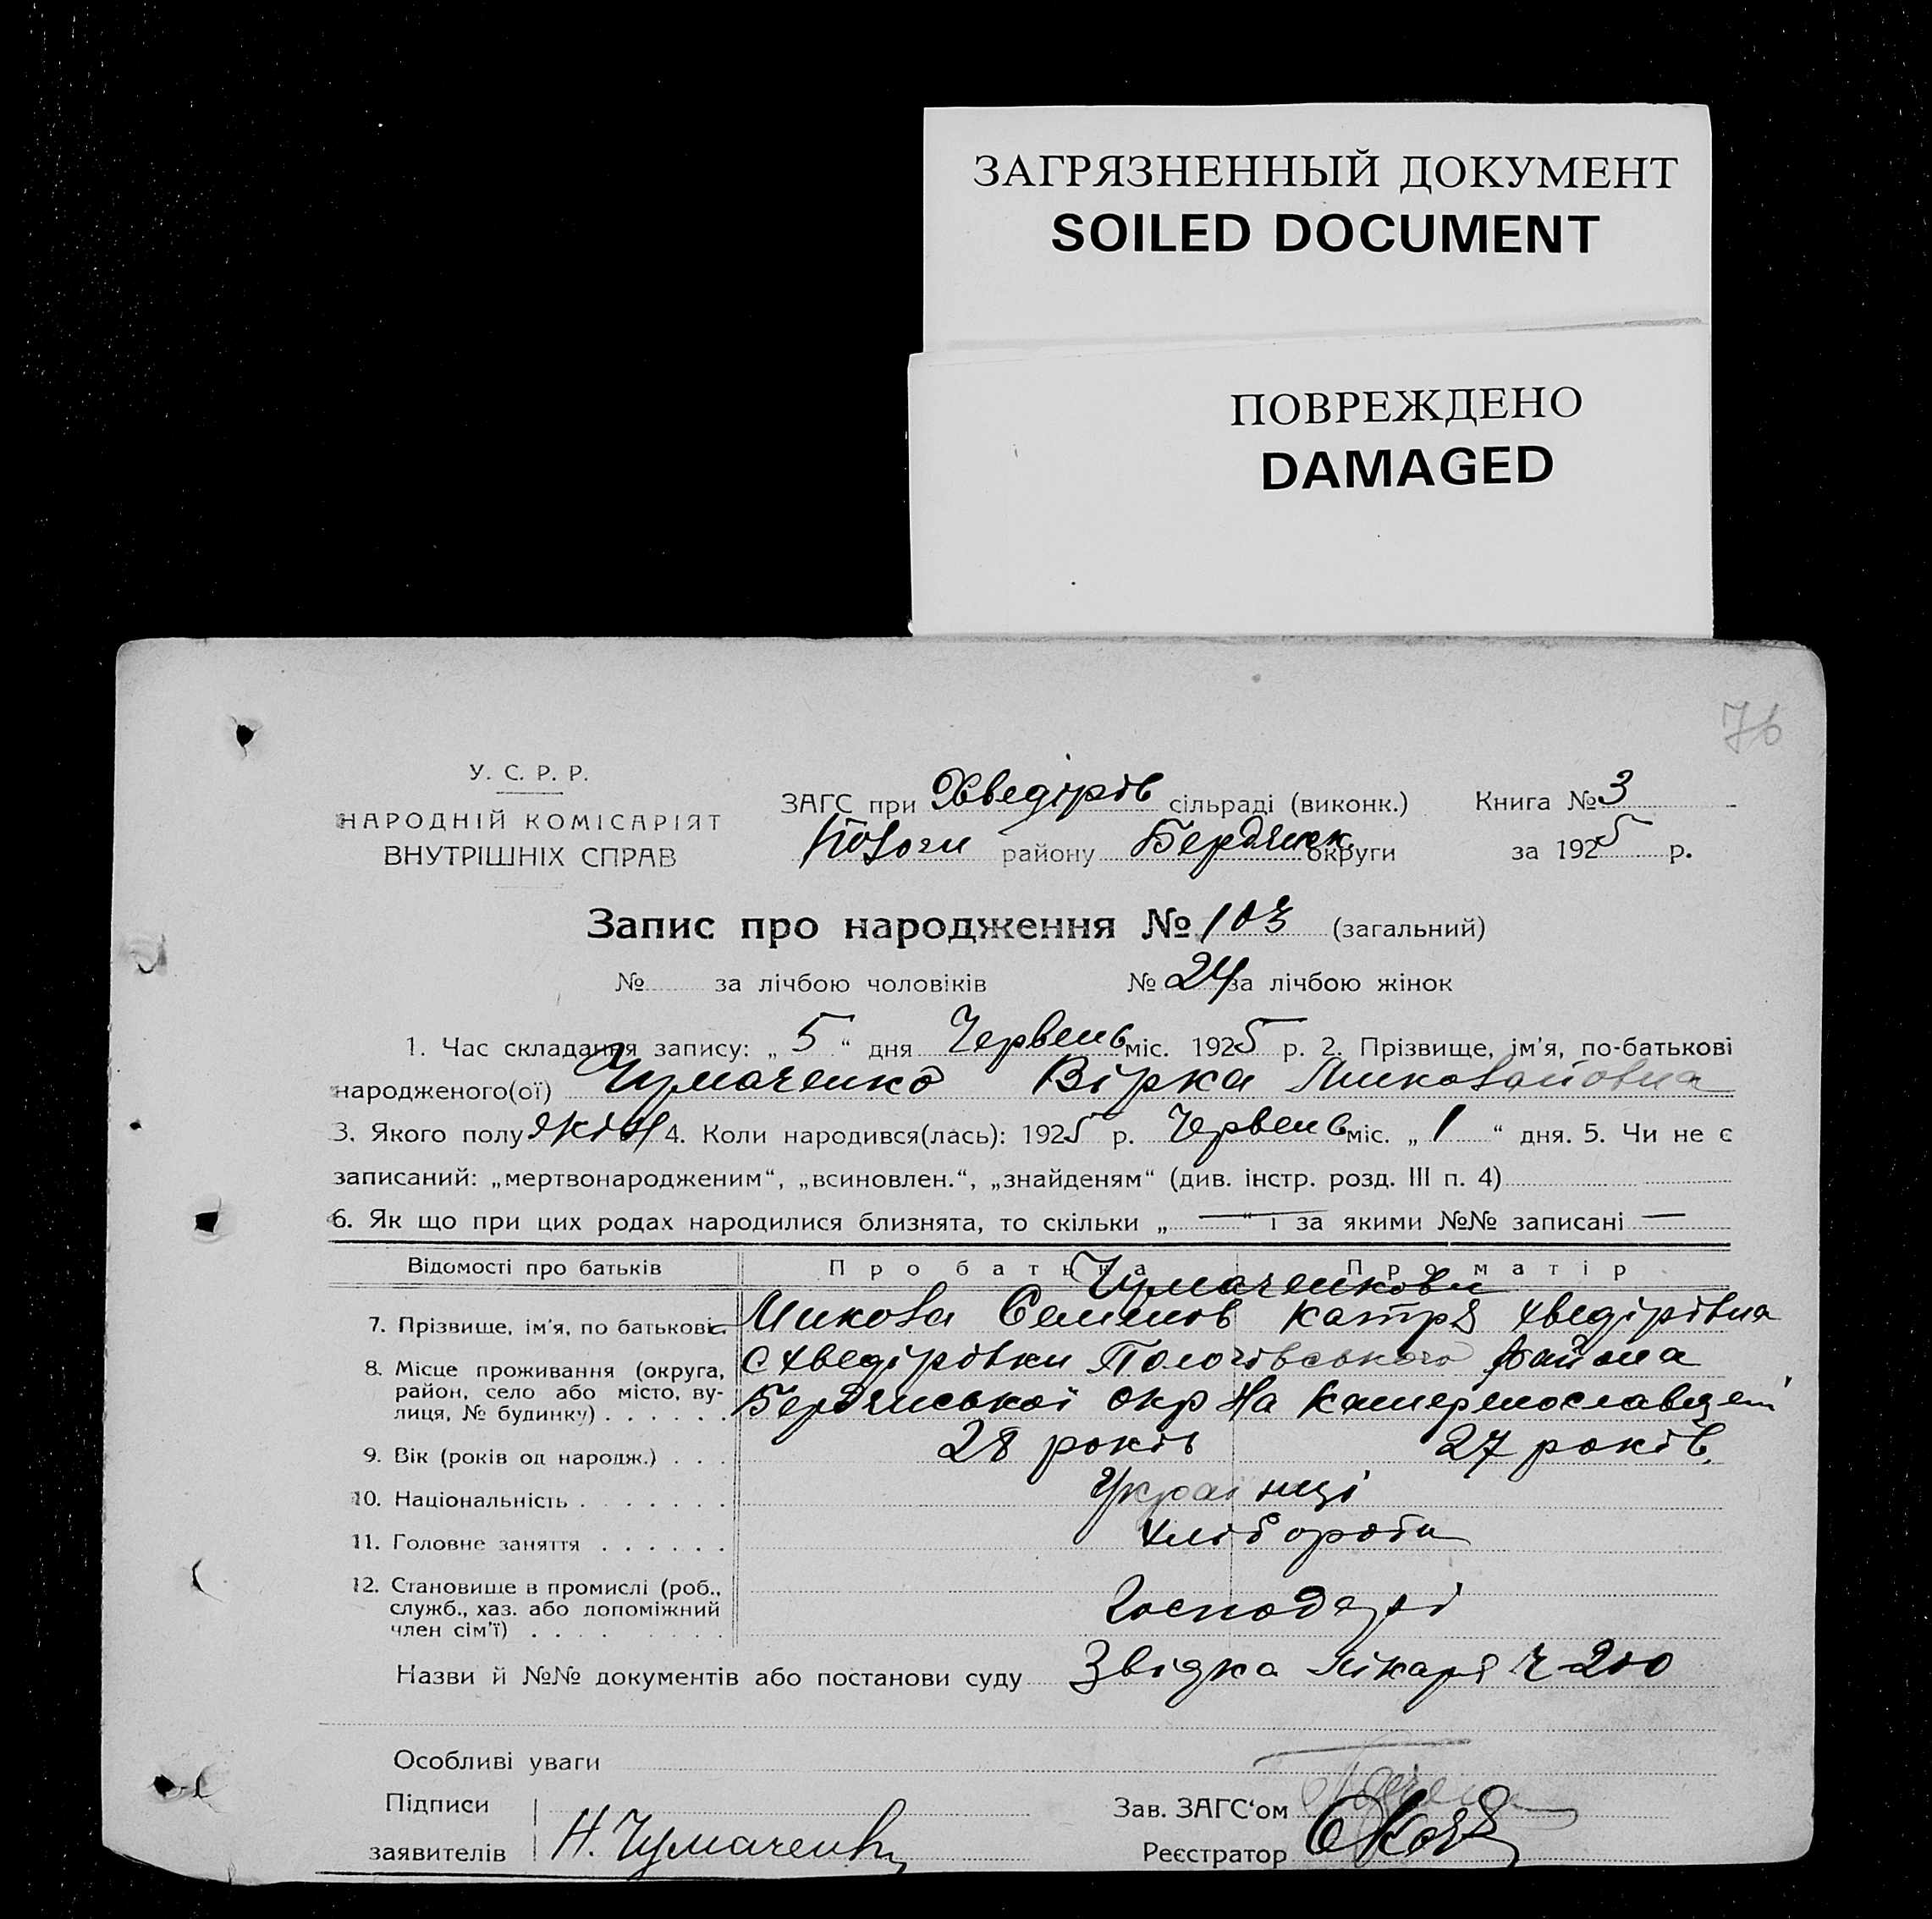 ЗАГРЯЗНЕННЫЙ ДОКУМЕНТ
SOILED DOCUMENT
ПОВРЕЖДЕНО
DAMAGED
76
У. С. Р. Р.
НАРОДНІЙ КОМІСАРІЯТ
ВНУТРІШНІХ СПРАВ
ЗАГС при Хведірів сільраді (виконк.) Книга № 3
Пологи району Бердянск. округи за 1925 р.
Запис про народження № 103 (загальний)
№ за лічбою чоловіків № 24 за лічбою жінок
1. Час складання запису: „ 5 “ дня Червень міс. 1925 р. 2. Прізвище, ім'я, по-батькові
народженого(ої) Чумаченко Вірка Миколайовна
3. Якого полу жін 4. Коли народився(лась): 1925 р. Червень міс. „ 1 “ дня. 5. Чи не є
записаний: „мертвонародженим“, „всиновлен.“, „знайденям“ (див. інстр. розд. III п. 4)
6. Як що при цих родах народилися близнята, то скільки „ — “ і за якими №№ записані —
Відомості про батьків Про батька Про матір
Чумаченкови
7. Прізвище, ім'я, по батькові. Микола Семенов Катря Хведірівна
8. Місце проживання (округа, район, село або місто, вулиця, № будинку) с Хведірівки Пологівського района
Бердянської окр на Катеренославщені
9. Вік (років од народж.) 28 років 27 років.
10. Національність Українці
11. Головне заняття хлібороби
12. Становище в промислі (роб., служб., хаз. або допоміжний член сім'ї) Господарі
Назви й №№ документів або постанови суду Звідка лікаря ч 200
Особливі уваги —
Підписи Зав. ЗАГС‘ом
заявителів Н. Чумаченко Реєстратор